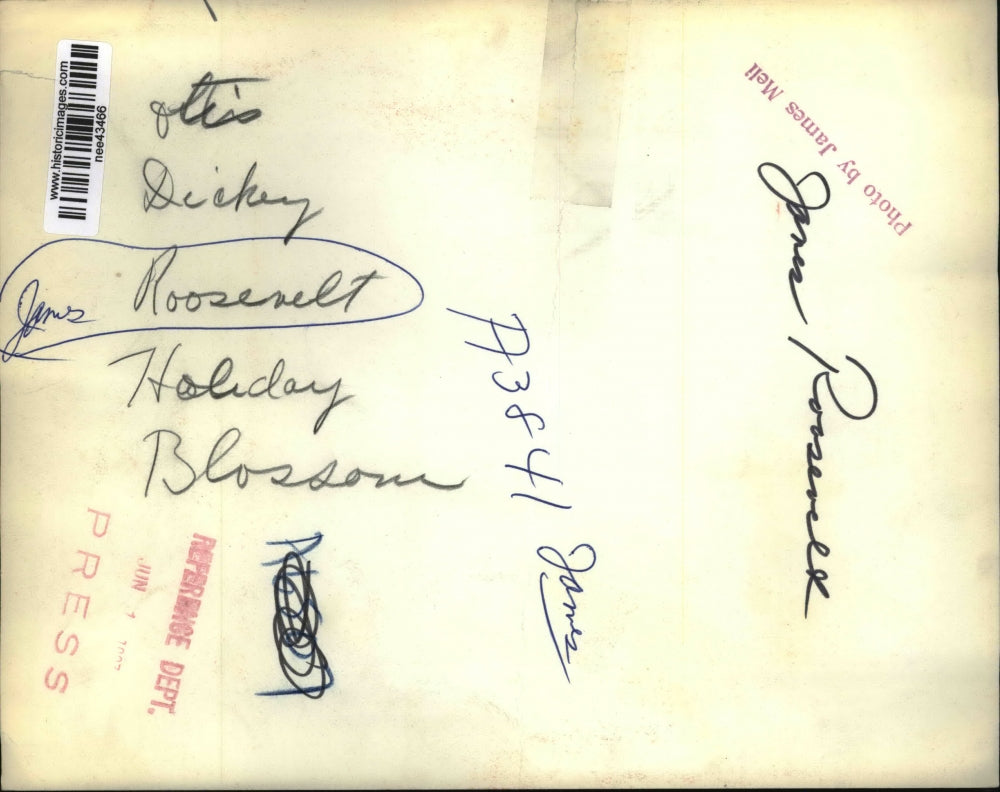 www.historicimages.com
nee43466
Otis
Dickey
James Roosevelt
Holiday
Blossom
A3841
James
Photo by James Meli
James Roosevelt
REFERENCE DEPT.
JUN 1
PRESS